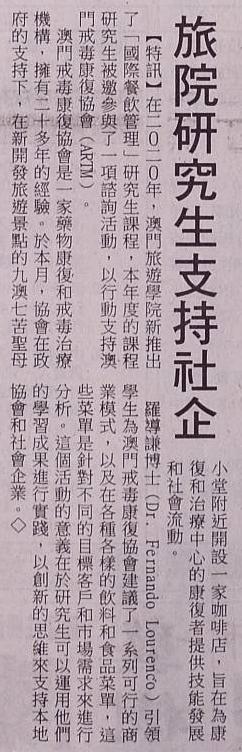 旅院研究生支持社企
【特訊】在二〇二〇年，澳門旅遊學院新推出
了「國際餐飲管理」研究生課程，本年度的課程
研究生被邀參與了一項諮詢活動，以行動支持澳
門戒毒康復協會（ARTM）。
澳門戒毒康復協會是一家藥物康復和戒毒治療
機構，擁有二十多年的經驗。於本月，協會在政
府的支持下，在新開發旅遊景點的九澳七苦聖母
小堂附近開設一家咖啡店，旨在為康
復和治療中心的康復者提供技能發展
和社會流動。
羅導謙博士（Dr. Fernando Lourenco）引領
學生為澳門戒毒康復協會建議了一系列可行的商
業模式，以及在各種各樣的飲料和食品菜單，這
些菜單是針對不同的目標客戶和市場需求來進行
分析。這個活動的意義在於研究生可以運用他們
的學習成果進行實踐，以創新的思維來支持本地
協會和社會企業。◇